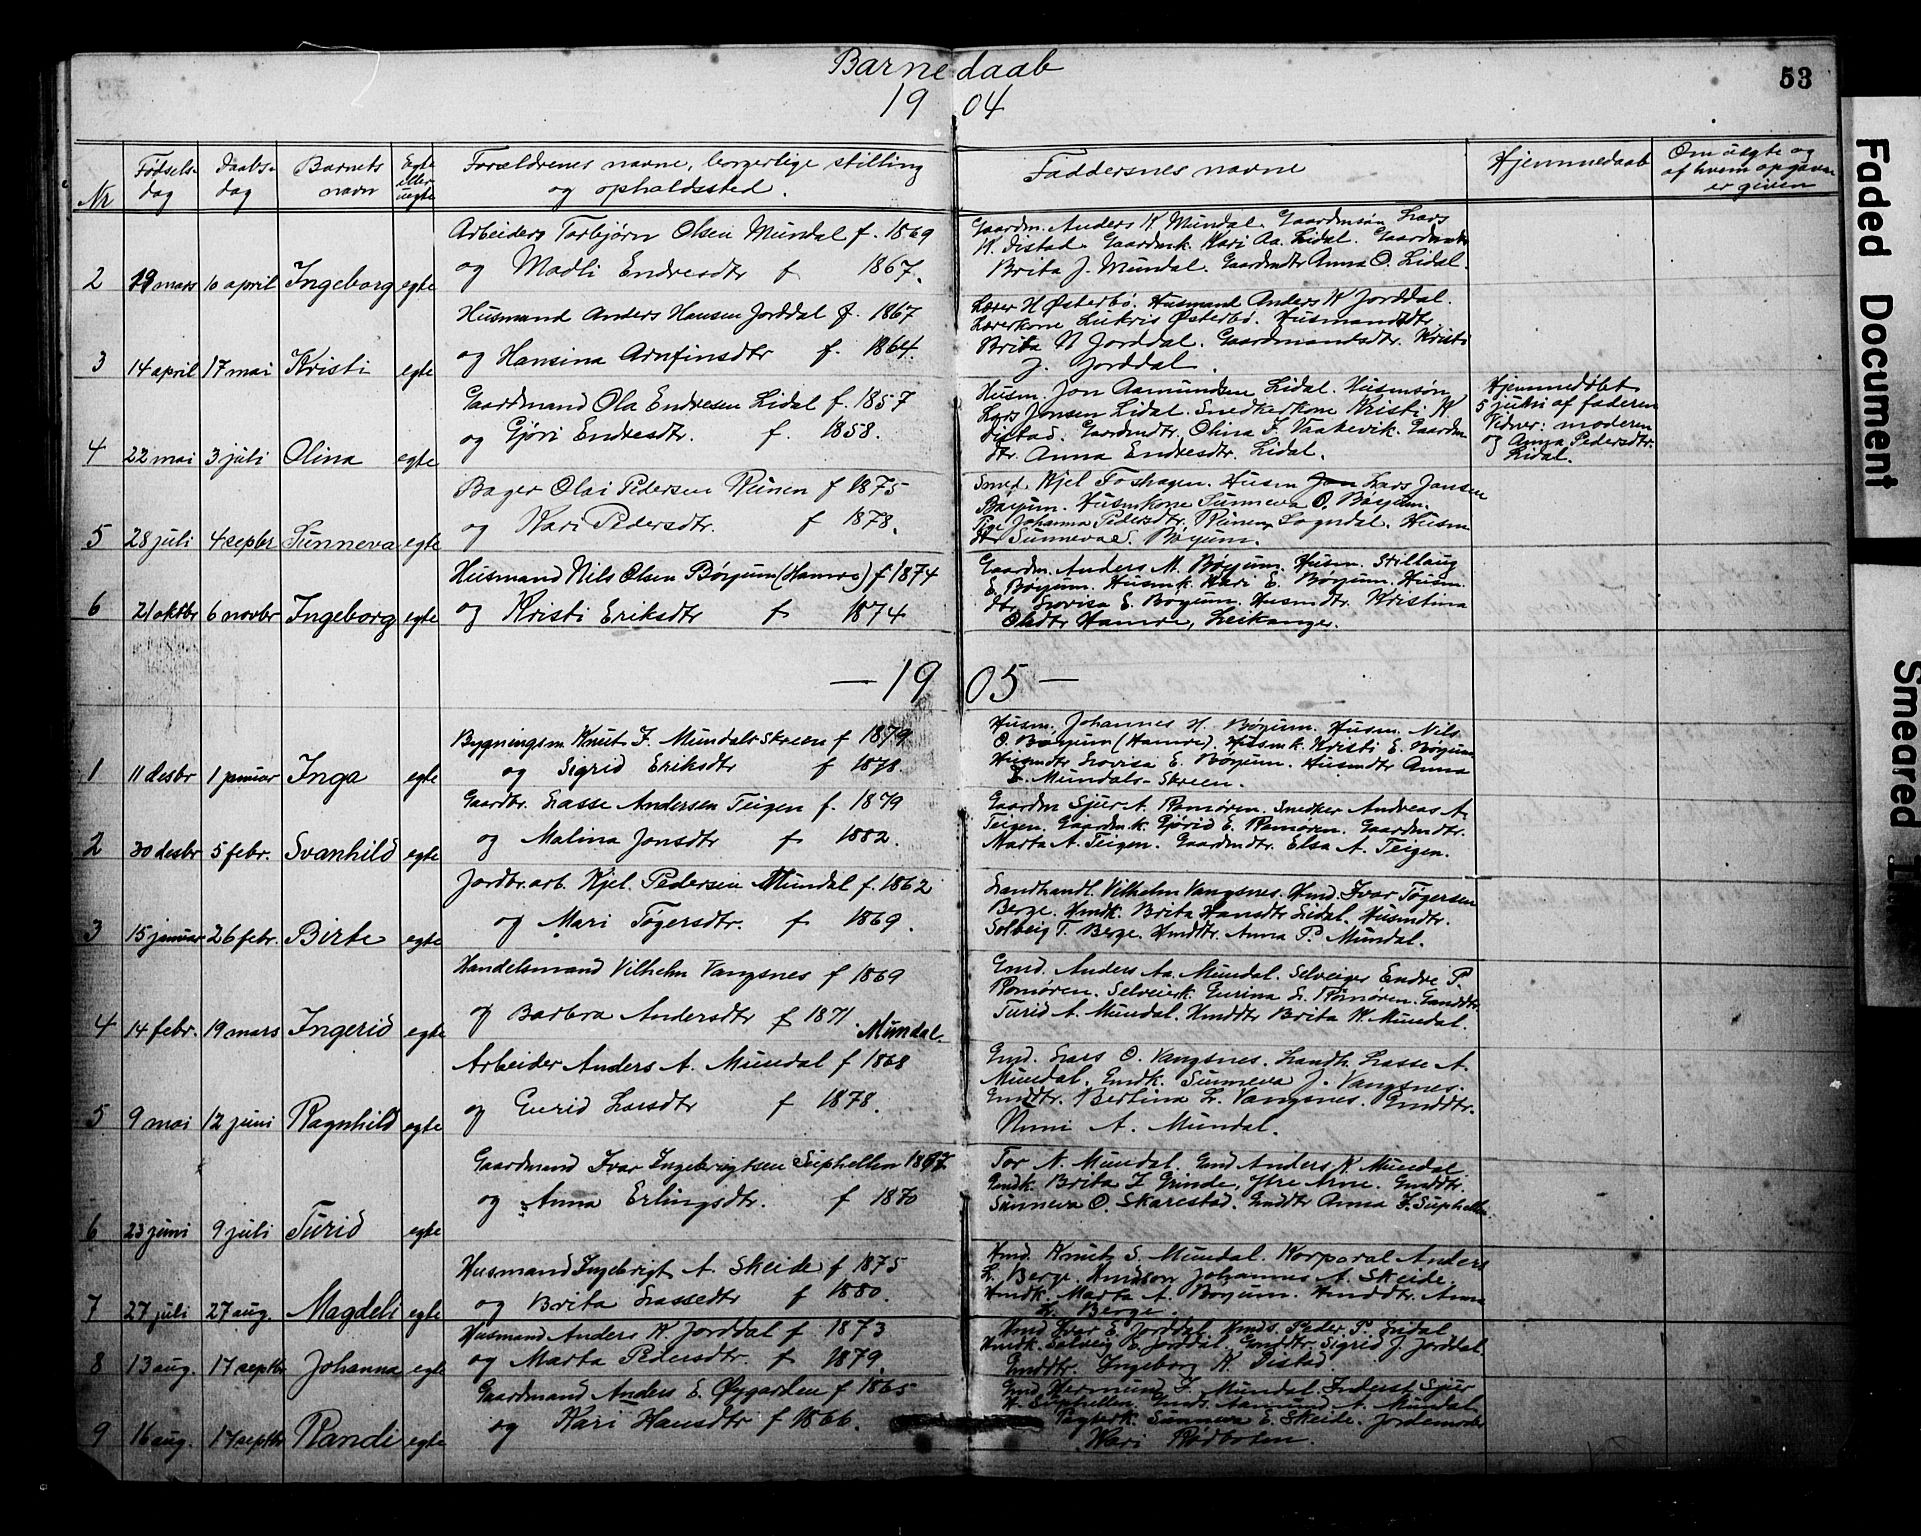 Barnedaab
53
19 04
Nr
Fødsels-
dag
Daabs-
dag
Barnets
navn
Egte
eller
uegte
Forældrenes navne, borgerlige stilling
og opholdssted.
Faddernes navne
Hjemmedaab
Om uegte og
af hvem opgaven
er given
2 19 mars 10 april Ingeborg egte
Arbeider Torbjørn Olsen Mundal f. 1869
og Madli Endresdtr f 1867.
Gaardm. Anders K Mundal. Gaardmsøn Lars
K. Distad. Gaardmk. Kari Aa. Lidal.
Brita J. Mundal. Gaardmdtr Anna O. Lidal.
3 14 april 17 mai Kristi egte
Husmand Anders Hansen Jorddal f. 1867
og Hansina Arnfinsdtr f. 1864.
Lærer H Østerbø. Husmand Anders K Jorddal.
Lærerkone Lukris Østerbø. Husmandsdtr
Brita N Jorddal. Gaardmandsdtr. Kristi
J. Jorddal.
4 22 mai 3 juli Olina egte
Gaardmand Ola Endresen Lidal f. 1857
og Gjøri Endresdtr. f. 1858.
Husm. Jon Aamundsen Lidal. Husmsøn
Lars Jonsen Lidal. Snedkerkone Kristi K.
Distad. Gaardmdtr. Olina I. Vatkevik. Gaardm
dtr. Anna Endresdtr. Lidal.
Hjemmedøbt
5 juni af faderen
Vidner: moderen
og Anna Pedersdtr.
Lidal.
5 28 juli 4 septbr Sunneva egte
Bager Olai Pedersen Rünen f 1875
og Kari Pedersdtr. f 1878.
Smed Kjel Foshagen. Husm Lars Jansen
Bøyum. Husmkone Sunneva O. Bøyum.
Pige Johanna Pedersdtr. Rünen Sogndal. Husm
dtr Sunneva E. Bøyum.
6 21 oktbr 6 novbr Ingeborg egte
Husmand Nils Olsen Bøyum (Hamre) f 1874
og Kristi Eriksdtr f 1874
Gaardm. Anders M. Bøyum. Husm. Stillaug
E. Bøyum. Husmk. Kari E. Bøyum. Husm
dtr. Lovisa E. Bøyum. Husmdtr. Kristina
Olsdtr Hamre, Leikanger.
— 19 05 —
1 11 desbr 1 januar Inga egte
Bygningsm Knut I. Mundals Skreen f 1879
og Sigrid Eriksdtr f 1878.
Husm. Johannes H. Bøyum. Husm. Nils
O. Bøyum (Hamre). Husmk. Kristi E. Bøyum
Husmdtr Lovisa E. Bøyum. Husmdtr Anna
I. Mundals-Skreen.
2 30 desbr 5 febr. Svanhild egte
Gaardbr. Lasse Andersen Teigen f. 1879
og Malina Jonsdtr f 1882.
Gaardm Sjur A. Romøren. Snedker Andreas A.
Teigen. Gaardmk. Gjørid E. Romøren. Gaardmdtr.
Marta A. Teigen. Gaardmdtr. Elsa A. Teigen.
3 15 januar 26 febr. Birte egte
Jordbr. arb. Kjel Pedersen Mundal f. 1862
og Mari Tøgersdtr. f 1869.
Landhandl. Vilhelm Vangsnes. Hmd. Ivar Tøgersen
Berge. Hmdk. Brita Hansdtr Lidal. Husmdtr.
Solveig T. Berge. Hmddtr. Anna P. Mundal.
4 14 febr. 19 mars Ingerid egte
Handelsmand Vilhelm Vangsnes f 1869
og Barbra Andersdtr f 1871. Mundal.
Gmd. Anders Aa. Mundal. Selveier Endre P.
Romøren. Selveierk. Gurina L. Romøren. Gmddtr.
Turid A. Mundal. Hmddtr Brita K. Mundal.
5 9 mai 12 juni Ragnhild egte
Arbeider Anders A. Mundal f 1868
og Gurid Larsdtr f 1878.
Gmd. Lars O. Vangsnes. Landh. Lasse A.
Mundal. Gmdk. Sunneva J. Vangsnes.
Gmddtr. Bertina L. Vangsnes. Gmddtr.
A. Mundal.
6 23 juni 9 juli Turid egte
Gaardmand Ivar Ingebrigtsen Suphellen 1867
og Anna Erlingsdtr. f 1870
Tor N. Mundal. Gmd Anders K. Mundal
Gmdk. Brita I Grinde, Ytre Arne. Gmddtr
Sunneva O. Skarestad. Gmddtr Anna I. Suphellen.
7 27 juli 27 aug. Magdeli egte
Husmand Ingebrigt A. Skeide f 1875
og Brita Lassedtr f 1880.
Hmd. Knut S. Mundal. Korporal Anders
L. Berge. Hmdsøn Johannes A. Skeide.
Hmdk. Marta A. Bøyum. Hmddtr. Anna
L. Berge.
8 13 aug. 17 septbr Johanna egte
Husmand Anders K. Jorddal f 1873
og Marta Pedersdtr. f 1879.
Hmd Ivar E. Jorddal. Hmds. Peder P. Lidal
Hmdk. Solveig E. Jorddal. Gmddtr. Sigrid J. Jorddal
Gmddtr. Ingeborg K. Distad
9 16 aug. 17 septbr Randi egte
Gaardmand Anders E. Øygarden f 1865
og Kari Hansdtr f 1866.
Gmd Hermund I. Mundal. Inderst Sjur
H. Suphellen. Gmds. Aamund A. Mundal
Sunneva E. Skeide. Jordemoder
Kari Rødbotten.
Faded Document
Smeared